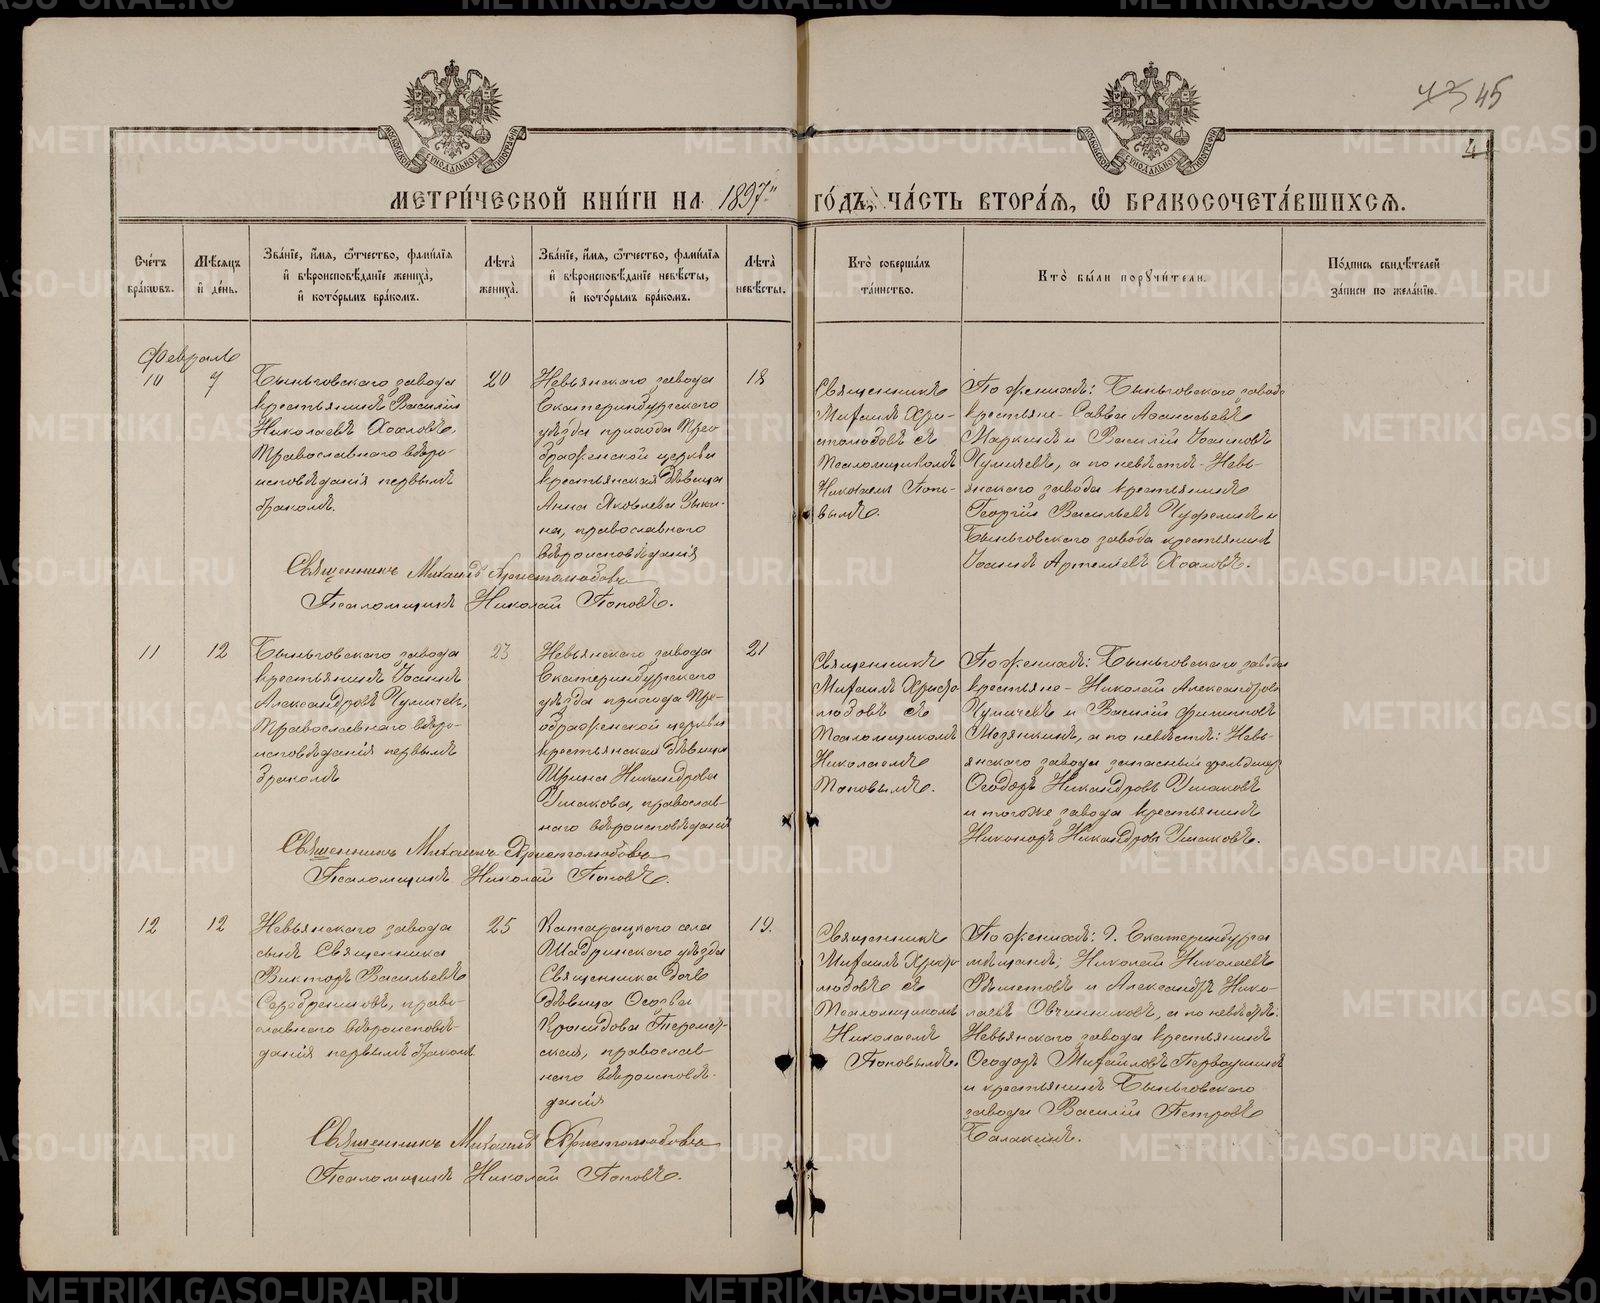 45
4
МОСКОВСКОЙ СѴНОДАЛЬНОЙ ТИПОГРАФІИ
МОСКОВСКОЙ СѴНОДАЛЬНОЙ ТИПОГРАФІИ
МЕТРИ́ЧЕСКОЙ КНИ́ГИ НА 1897 ГО́ДЪ, ЧА́СТЬ ВТОРА́Ѧ, Ѡ БРАКОСОЧЕТА́ВШИХСѦ.
Сче́тъ бра́кωвъ.
Мѣ́сѧцъ и де́нь.
Зва́нїе, и́мѧ, ѻтчество, фами́лїѧ и вѣроисповѣ́данїе жениха̀, и кото́рымъ бра́комъ.
Лѣ́та жениха̀.
Зва́нїе, и́мѧ, ѻтчество, фами́лїѧ и вѣроисповѣ́данїе невѣ́сты, и кото́рымъ бра́комъ.
Лѣ́та невѣ́сты.
Кто̀ соверша́лъ та́инство.
Кто̀ бы́ли порꙋчи́тели.
По́дпись свидѣ́телей за́писи по жела́нїю.
Февраль
10
7
Быньговскаго завода
крестьянинъ Василій
Николаевъ Хохловъ,
Православнаго вѣро-
исповѣданія первымъ
бракомъ.
20
Невьянскаго завода
Екатеринбургскаго
уѣзда прихода Прео
браженской церкви
крестьянская дѣвица
Анна Яковлева
на, православнаго
вѣроисповѣданія
18
Священникъ
Михаилъ Хри-
столюбовъ съ
Псаломщикомъ
Николаемъ Попо-
вымъ.
По женихѣ: Быньговскаго завода
крестьяне - Савва Аѳанасьевъ
Маркинъ и Василій Іоанновъ
Чумичевъ, а по невѣстѣ - Невь-
янскаго завода крестьянинъ
Георгій Васильевъ и
Быньговскаго завода крестьянинъ
Іоаннъ Артемьевъ Хохловъ.
Священникъ Михаилъ Христолюбовъ
Псаломщикъ Николай Поповъ.
11
12
Быньговскаго завода
крестьянинъ Іоаннъ
Александровъ Чумичевъ,
Православнаго вѣро-
исповѣданія первымъ
бракомъ
23
Невьянскаго завода
Екатеринбургскаго
уѣзда прихода Пре-
ображенской церкви
крестьянская дѣвица
Ирина Никандрова
Ушакова, православ-
наго вѣроисповѣданія
21
Священникъ
Михаилъ Христо-
любовъ съ
Псаломщикомъ
Николаемъ
Поповымъ.
По женихѣ: Быньговскаго завода
крестьяне - Николай Александровъ
Чумичевъ и Василій Филиповъ
Мезянкинъ, а по невѣстѣ: Невь-
янскаго завода запасный фельдшеръ
Ѳеодоръ Никандровъ Ушаковъ
и тогоже завода крестьянинъ
Никоноръ Никандровъ Ушаковъ.
Священникъ Михаилъ Христолюбовъ
Псаломщикъ Николай Поповъ.
12
12
Невьянскаго завода
сынъ Священника
Викторъ Васильевъ
Серебренниковъ, право-
славнаго вѣроисповѣ-
данія первымъ бракомъ
25
Катарацкаго села
Шадринскаго уѣзда
Священника дочь
дѣвица
Кронидова
ская, православ-
наго вѣроисповѣ-
данія
19.
Священникъ
Михаилъ Христо-
любовъ съ
Псаломщикомъ
Николаемъ
Поповымъ.
По женихѣ: г. Екатеринбурга
мѣщане; Николай Николаевъ
Рѣшетовъ и Александръ Нико-
лаевъ Овчинниковъ, а по невѣстѣ:
Невьянскаго завода крестьянинъ
Ѳеодоръ Михайловъ Первушинъ
и крестьянинъ Быньговскаго
завода Василій Петровъ
Балакинъ.
Священникъ Михаилъ Христолюбовъ
Псаломщикъ Николай Поповъ.
METRIKI.GASO-URAL.RU